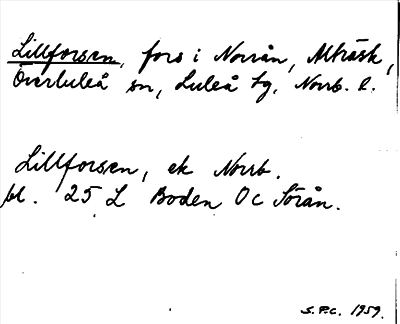 Lillforsen, fors i Norrån, Alträsk,
Överluleå sn, Luleå tg, Norrb. l.
Lillforsen, ek Norrb.
bl. 25 L Boden Oc Sörån.
S.P.C. 1959.